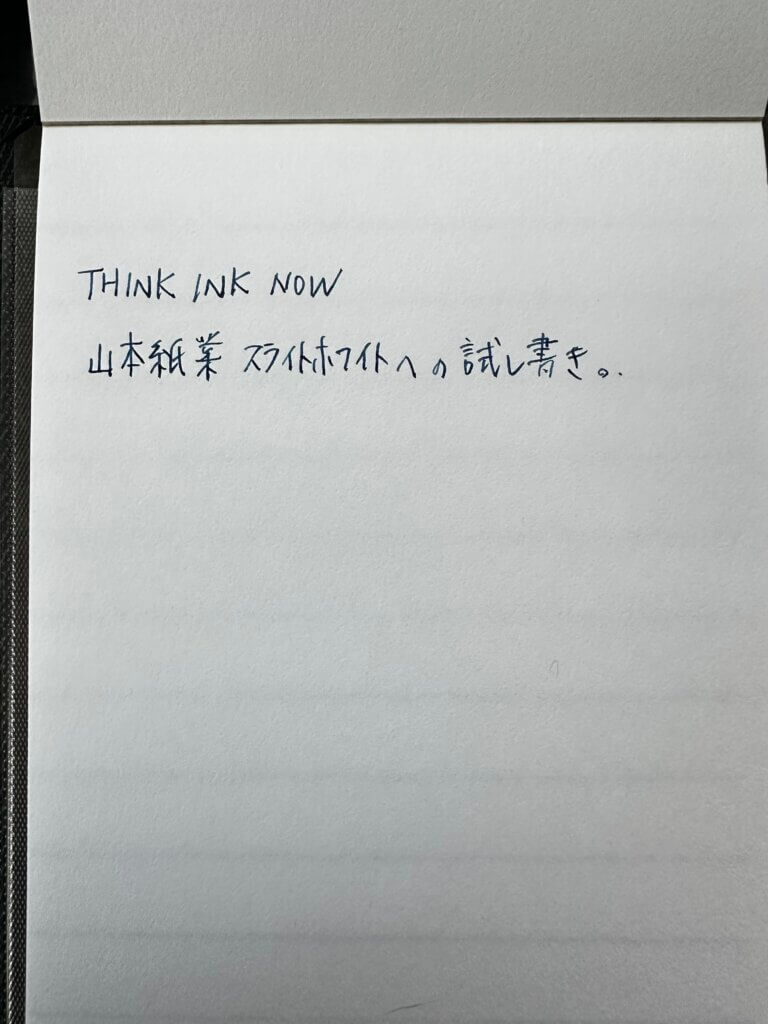 THINK INK NOW
山本紙業 スライトホワイトへの試し書き。